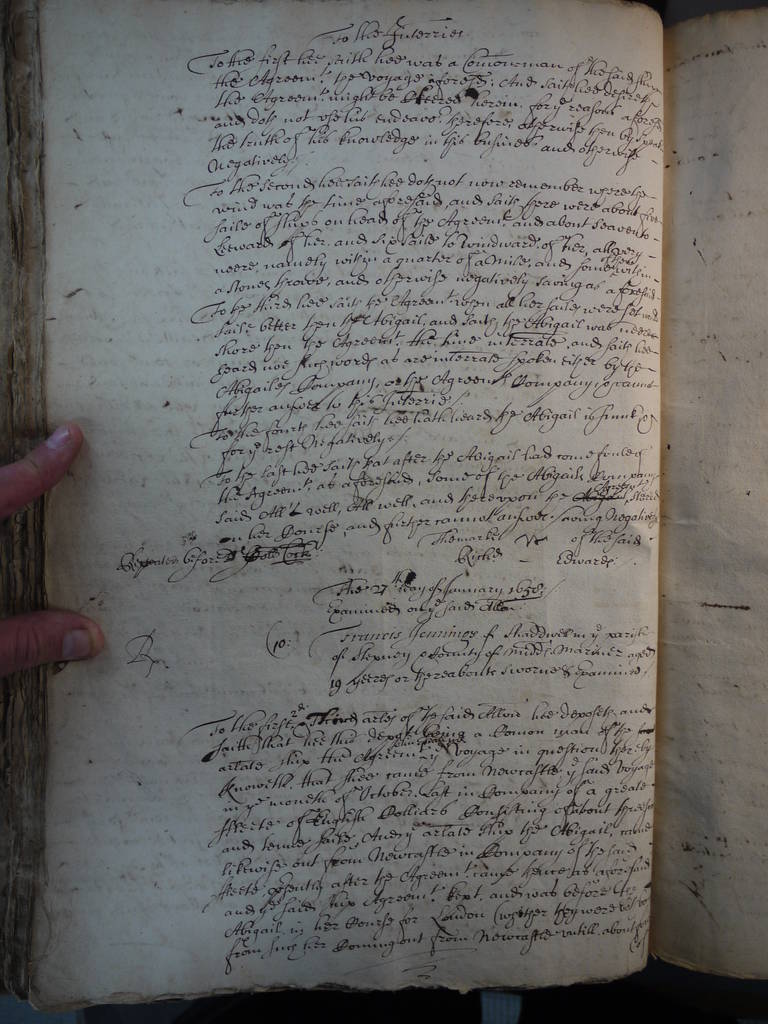 To the Interries
To the first hee saith hee was a Comonman of the said shipp
the Agreemt. the voyage aforesd: And saith hee desireth
the Agreemt. might be Cleered herein, for ye reasons aforesd
and doth not use his endeavor. therefore, otherwise then by speak
the truth of his knowledge in this business and otherwise
Negatively
To the Second hee saith hee doth not now remember where the
wind was the time aforesaid, and saith there were about five
saile of shipps on head of the Agreemt. and about seaven to
Leward of her, and six saile to windward of her, all very
neere, namely within a quarter of a mile, and some of them within
a stones throwe, and otherwise negatively saving as aforesaid
To the third hee saith the Agreemt. when all her sailes were set
saile better then the Abigail, and saith the Abigail was neerer
shore then the Agreemt. the time interrate, and saith hee
heard noe such words as are interrate spoken either by the
Abigailes Company, or the Agreemts Company, cannot
further answer to this Interrie
To the fourth hee saith hee hath heard the Abigail is sunk
for ye rest Negatively
To the last hee saith that after the Abigail had come fowle of
the Agreemt. as aforesaid, some of the Abigails Company
said All's well, All well, and thereupon the Agreemt stered
on her Course, and further cannot answer saving Negatively
The marke of the said
Repeated before Doctr
Richd Edwards
The 27th day of January 1658
Examined on ye said Allon
Rp. (10: Francis Jennings of Shadwell in ye parish
of Stepney & County of Middx Mariner aged
19 yeeres or thereabouts sworne & Examined
To the first, 2d. Third arles of the said Allon hee deposeth and
saith that hee this dept being a Comon man of the
arlate ship the Agreemt. ye voyage in question thereby
Knoweth, that shee came from Newcastle ye said voyage
in ye moneth of October last in Company of a greate
fleete of English Colliers Consisting of about three score
and tenne saile, And ye arlate ship the Abigail, came
likewise out from Newcastle in Company of the said
fleete, presently after the Agreemt. came thence, as aforesaid
and the said ship Agreemt. kept, and was before the
Abigail in her Course for London (whither they were
from such her Coming out from Newcastle untill about